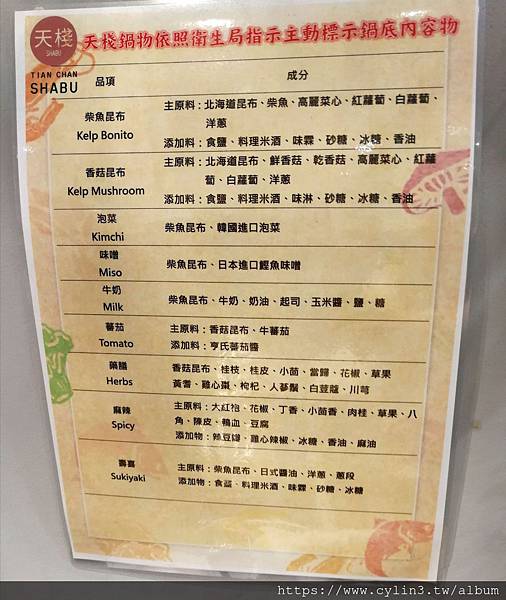 天棧
SHABU
TIAN CHAN
SHABU
天棧鍋物依照衛生局指示主動標示鍋底內容物
品項
成分
柴魚昆布
Kelp Bonito
主原料：北海道昆布、柴魚、高麗菜心、紅蘿蔔、白蘿蔔、
洋蔥
添加料：食鹽、料理米酒、味霖、砂糖、冰糖、香油
香菇昆布
Kelp Mushroom
主原料：北海道昆布、鮮香菇、乾香菇、高麗菜心、紅蘿
蔔、白蘿蔔、洋蔥
添加料：食鹽、料理米酒、味淋、砂糖、冰糖、香油
泡菜
Kimchi
柴魚昆布、韓國進口泡菜
味噌
Miso
柴魚昆布、日本進口鰹魚味噌
牛奶
Milk
柴魚昆布、牛奶、奶油、起司、玉米醬、鹽、糖
蕃茄
Tomato
主原料：香菇昆布、牛蕃茄
添加料：亨氏蕃茄醬
藥膳
Herbs
香菇昆布、桂枝、桂皮、小茴、當歸、花椒、草果
黃耆、雞心棗、枸杞、人蔘鬚、白荳蔻、川芎
麻辣
Spicy
主原料：大紅袍、花椒、丁香、小茴香、肉桂、草果、八
角、陳皮、鴨血、豆腐
添加物：辣豆瓣、雞心辣椒、冰糖、香油、麻油
壽喜
Sukiyaki
主原料：柴魚昆布、日式醬油、洋蔥、蔥段
添加物：食鹽、料理米酒、味霖、砂糖、冰糖
https://www.cylin3.tw/album